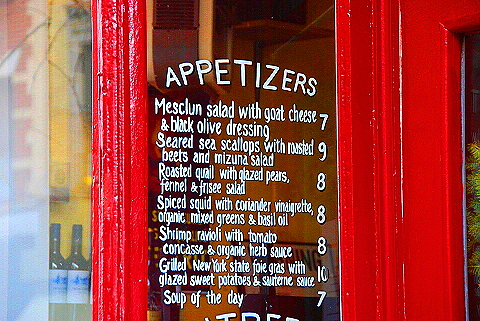 APPETIZERS
Mesclun salad with goat cheese 7
& black olive dressing
Seared sea scallops with roasted 9
beets and mizuna salad
Roasted quail with glazed pears, 8
fennel & frisee salad
Spiced squid with coriander vinaigrette, 8
organic mixed greens & basil oil
Shrimp ravioli with tomato 8
concasse & organic herb sauce
Grilled New York state foie gras with 10
glazed sweet potatoes & sauterne sauce
Soup of the day 7